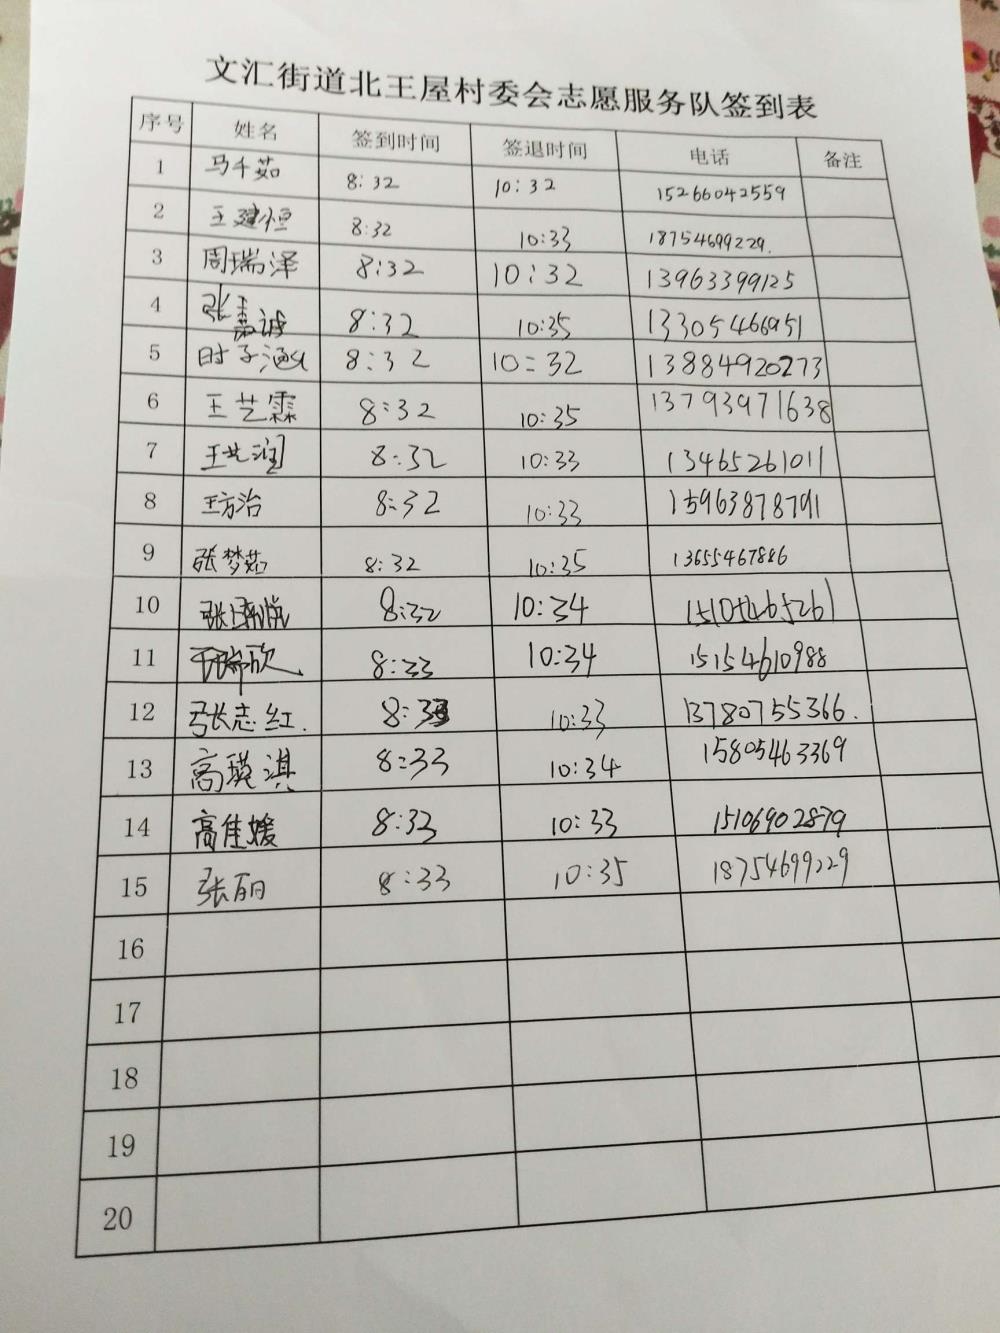 文汇街道北王屋村委会志愿服务队签到表
序号 姓名 签到时间 签退时间 电话 备注
1 马千茹 8:32 10:32 15266042559
2 王建恒 8:32 10:33 18754699229.
3 周瑞泽 8:32 10:32 13963399125
4 张嘉诚 8:32 10:35 13305466951
5 时子涵 8:32 10:32 13884920273
6 王艺霖 8:32 10:35 13793971638
7 王艺润 8:32 10:33 13465261011
8 王方治 8:32 10:33 15963878791
9 张梦茹 8:32 10:35 13655467886
10 8:32 10:34 15105465261
11 8:33 10:34 15154610988
12 张志红. 8:33 10:33 13780755366.
13 高瑛淇 8:33 10:34 15805463369
14 高佳媛 8:33 10:33 15106902879
15 张丽 8:33 10:35 18754699229
16
17
18
19
20